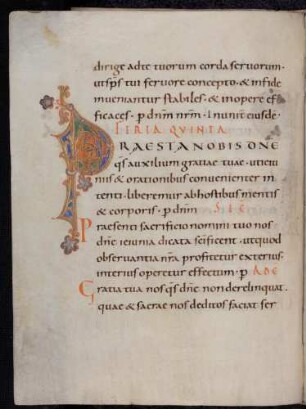 dirige ad te tuorum corda seruorum·
ut sps tui feruore concepto· & in fide
inueniantur stabiles· & in opere ef
ficaces· p dnm nrm· In unit eiusde·
FERIA QUINTA
PRAESTA NOBIS DNE
qs auxilium gratiae tuae· ut ieiu
niis & orationibus conuenienter in
tenti· liberemur ab hostibus mentis
& corporis· p dnm S.
Praesenti sacrificio nomini tuo nos
dne ieiunia dicata scificent· ut quod
obseruantia nra profitetur exterius·
interius operetur effectum· p AD C
Gratia tua nos qs dne non derelinquat·
quae & sacrae nos deditos faciat ser